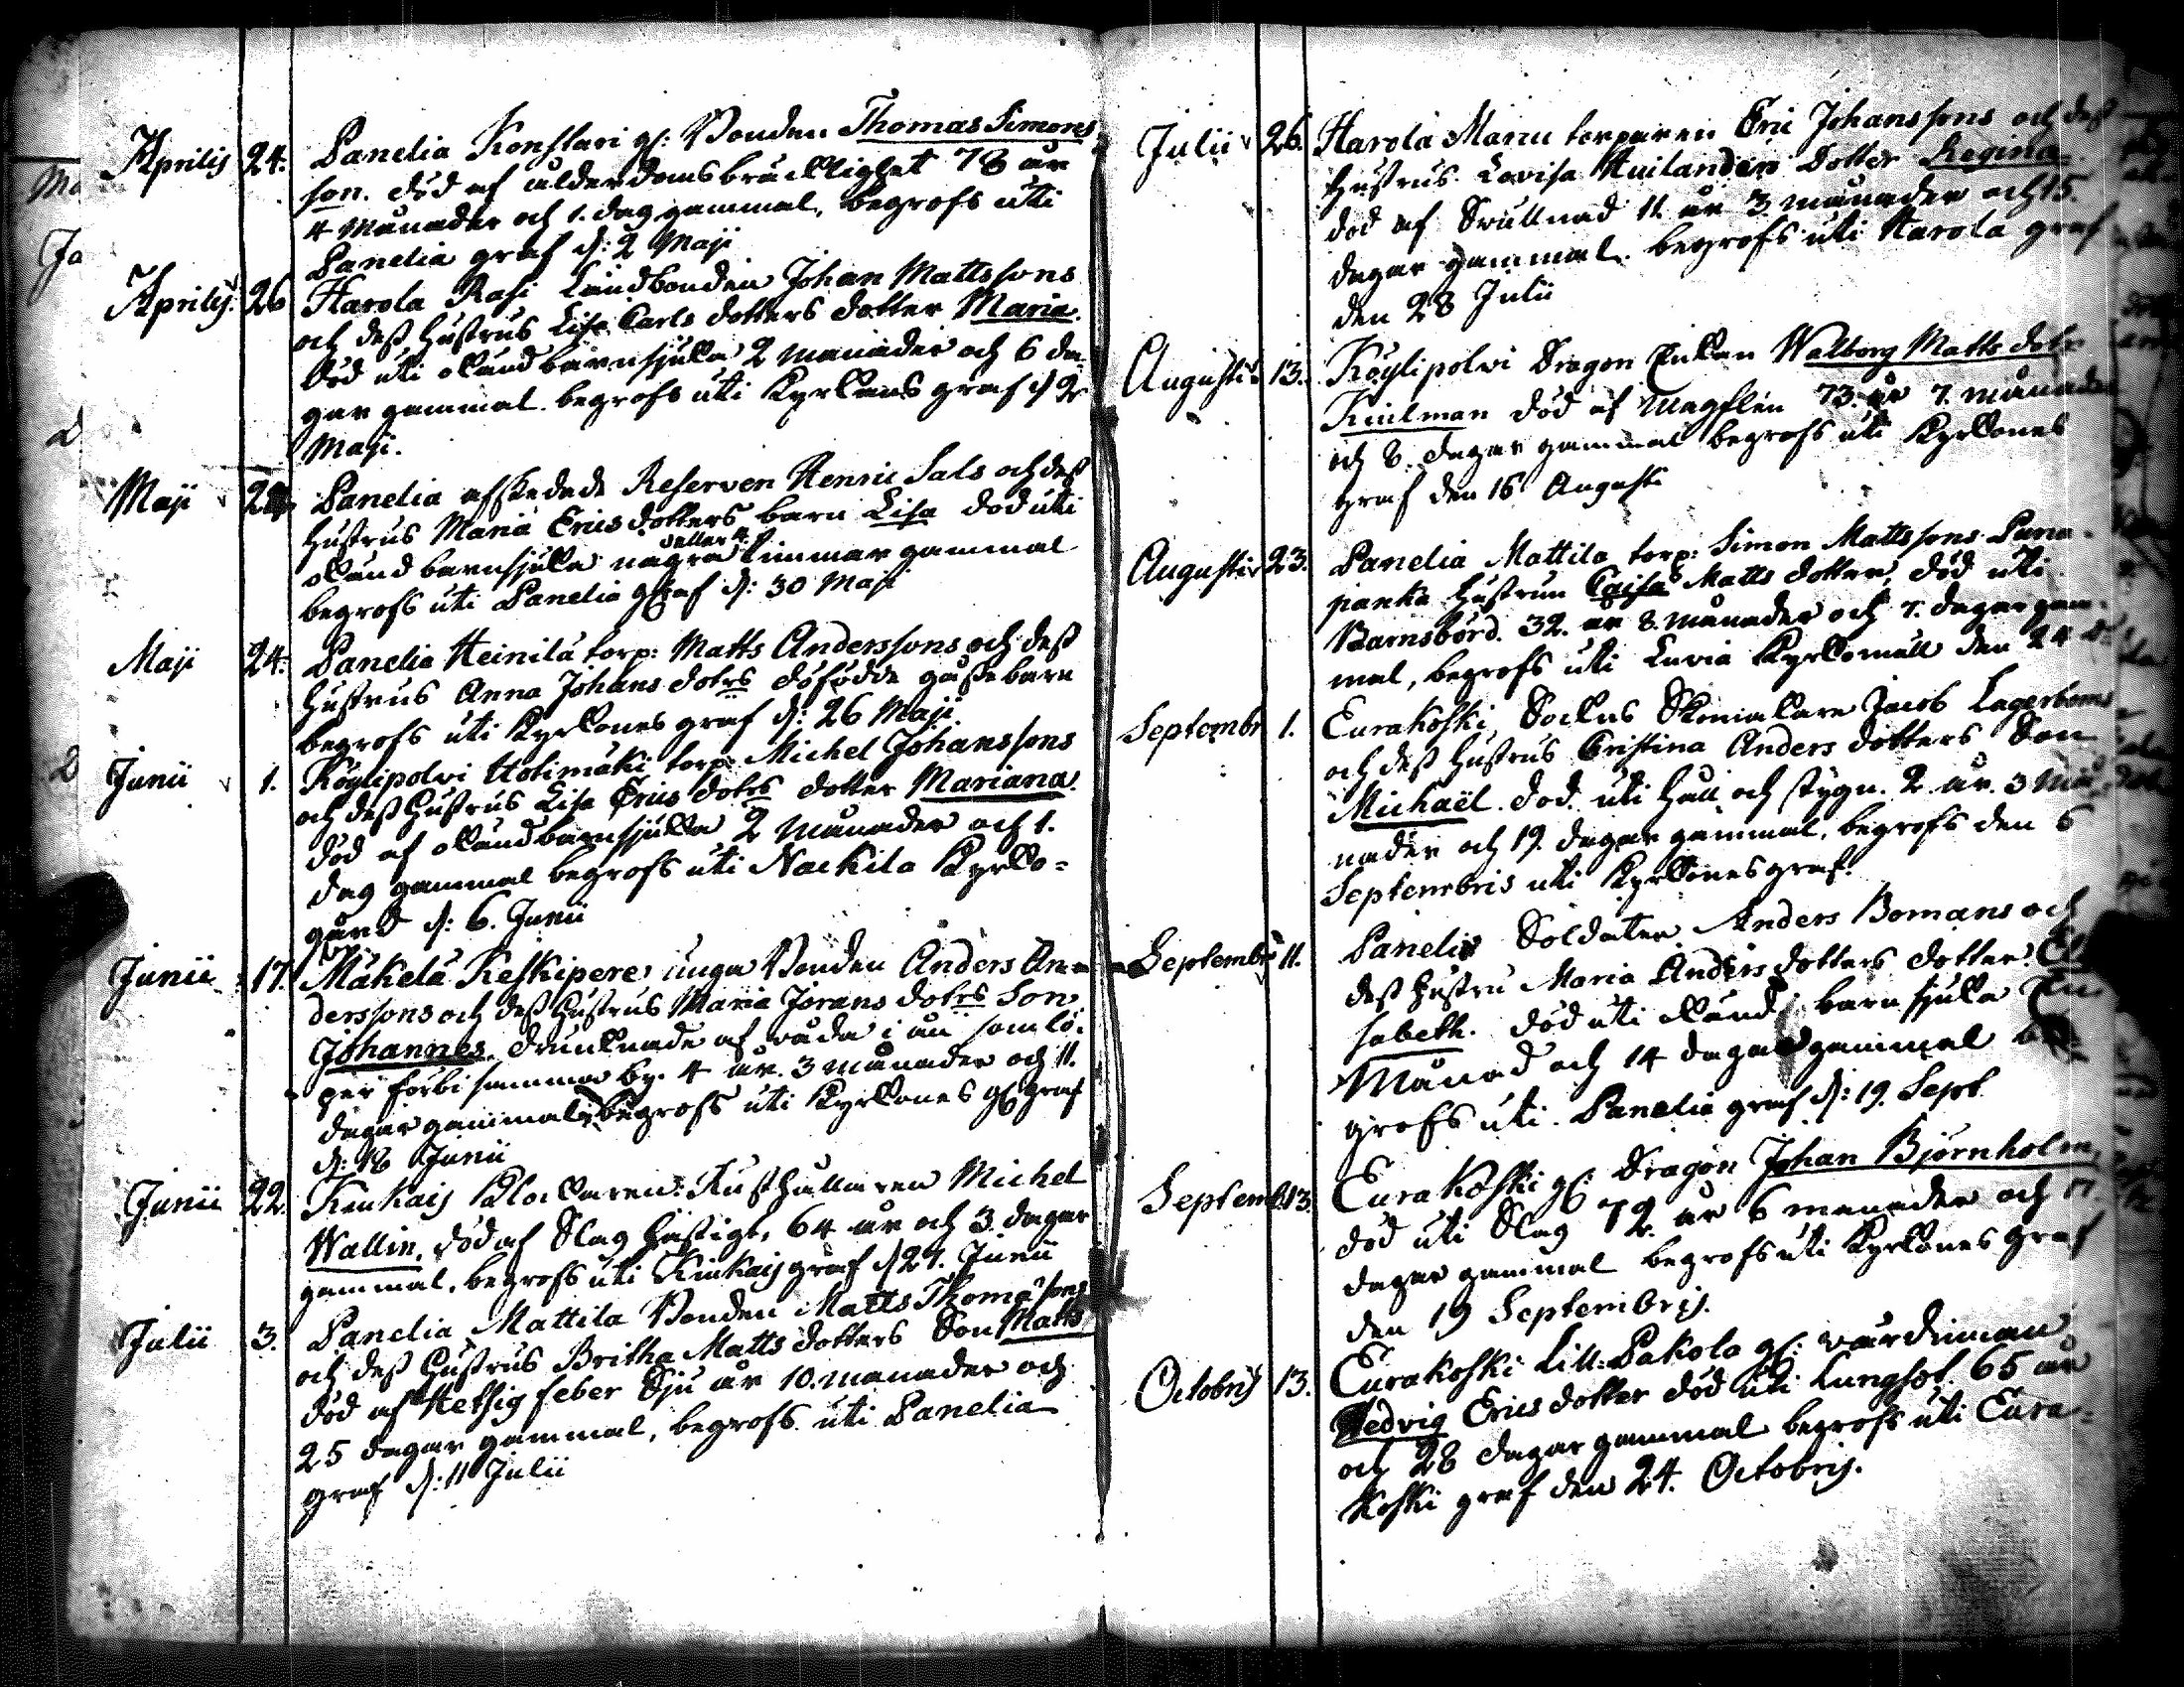 Aprilis 24. Panelia Konstari gl: Bonden Thomas Simons
son. död af ålderdoms bräcklighet 78 år
4 Månader och 1. dag gammal, begrofs uti
Panelia graf d: 2 Maji
Aprilis 26 Harola Rasi Landbonden Johan Mattssons
och dess hustrus Lisa Carls dotters dotter Maria.
död uti okänd barnsjuka 2 Månader och 6 da-
gar gammal. begrofs uti Kyrkans graf d 2
Maji.
Maji Panelia afskedade Reserven Henric Sals och dess
hustrus Maria Erics dotters barn Lisa död uti
okänd barnsjuka några eller 4 timmar gammal
begrofs uti Panelia graf d: 30 Maji
Maji 24. Panelia Heinilä torp: Matts Anderssons och dess
hustrus Anna Johans dotrs döfödde gåssebarn
begrofs uti Kyrkones graf d: 26 Maji.
Junii 1. Köylipolvi Uotimäki torp: Michel Johanssons
och dess hustrus Lisa Erics dotrs dotter Mariana.
död af okänd barnsjuka 2 Månader och 1.
dag gammal begrofs uti Nackila Kyrko=
gård d: 6. Junii
Junii 17. Mäkelä Keskipere unga Bonden Anders An-
derssons och dess hustrus Maria Jörans dotrs Son
Johannes. drunknade af våda i ån som lö-
per förbi samma by. 4 år. 3 månader och 11.
dagar gammal, begrofs uti Kyrkones gl graf
d: 18 Junii
Junii 22. Kiukais Klockaren: Rusthållaren Michel
Wallin, död af Slag hastigt, 64 år och 3. dagar
gammal, begrofs uti Kiukais graf d 27. Junii
Julii 3. Panelia Mattila Bonden Matts Thomassons
och dess hustrus Britha Matts dotters Son Matts
död af Hetsig feber Sju år 10. månader och
25 dagar gammal, begrofs uti Panelia
graf d: 11 Julii
Julii 26. Harola Mannu torparen Eric Johanssons och dess
hustrus Lovisa Huilanders Dotter Regina
död af Svullnad 11. år 3 månader och 15.
dagar gammal. begrofs uti Harola graf
den 28 Julii
Augusti 13. Köylipolvi Dragon Enkan Walborg Matts dotr
Kiulman död af Magplån 73. år 7. månader
och 8. dagar gammal begrofs uti Kyrkones
graf den 16 Augusti
Augusti 23. Panelia Mattila torp: Simon Mattssons Puna-
panka hustrun Caisa Matts dotter, död uti
Barnsbörd. 32. år 8. månader och 7. dagar gam-
mal, begrofs uti Luvia Kyrkomull den 24 d:
Septembr 1. Eurakoski Sockne Skomakare Jacob Lagerboms
och dess hustrus Cristina Anders dotters Son
Michaël. död uti håll och stygn. 2. år. 3 må-
nader och 19. dagar gammal, begrofs den 6
Septembris uti Kyrkones graf.
Septembr 11. Panelia Soldaten Anders Bomans och
dess hustru Maria Anders dotters dotter
sabeth. död uti okänd barn sjuka En
Månad och 14 dagar gammal be-
grofs uti Panelia graf d: 19. Sept
Septemb. 13. Eurakoski gl: Dragon Johan Björnholm
död uti Slag 72 år 6 månader och 17.
dagar gammal begrofs uti Kyrkones graf
den 19 Septembris.
Octobris 13. Eurakoski Lill: Pakola gl: värdinnan
Hedvig Erics dotter död uti Lungsot. 65 år
och 28 dagar gammal begrofs uti Eura-
koski graf den 24. Octobris.